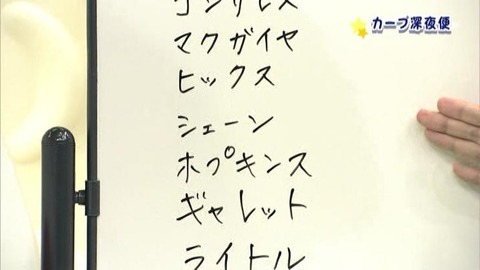 カープ深夜便
ゴンザレス
マクガイヤ
ヒックス
シェーン
ホプキンス
ギャレット
ライトル